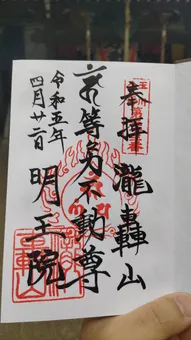 奉拝
瀧轟山
等等力不動尊
明王院
令和五年
四月廿二日